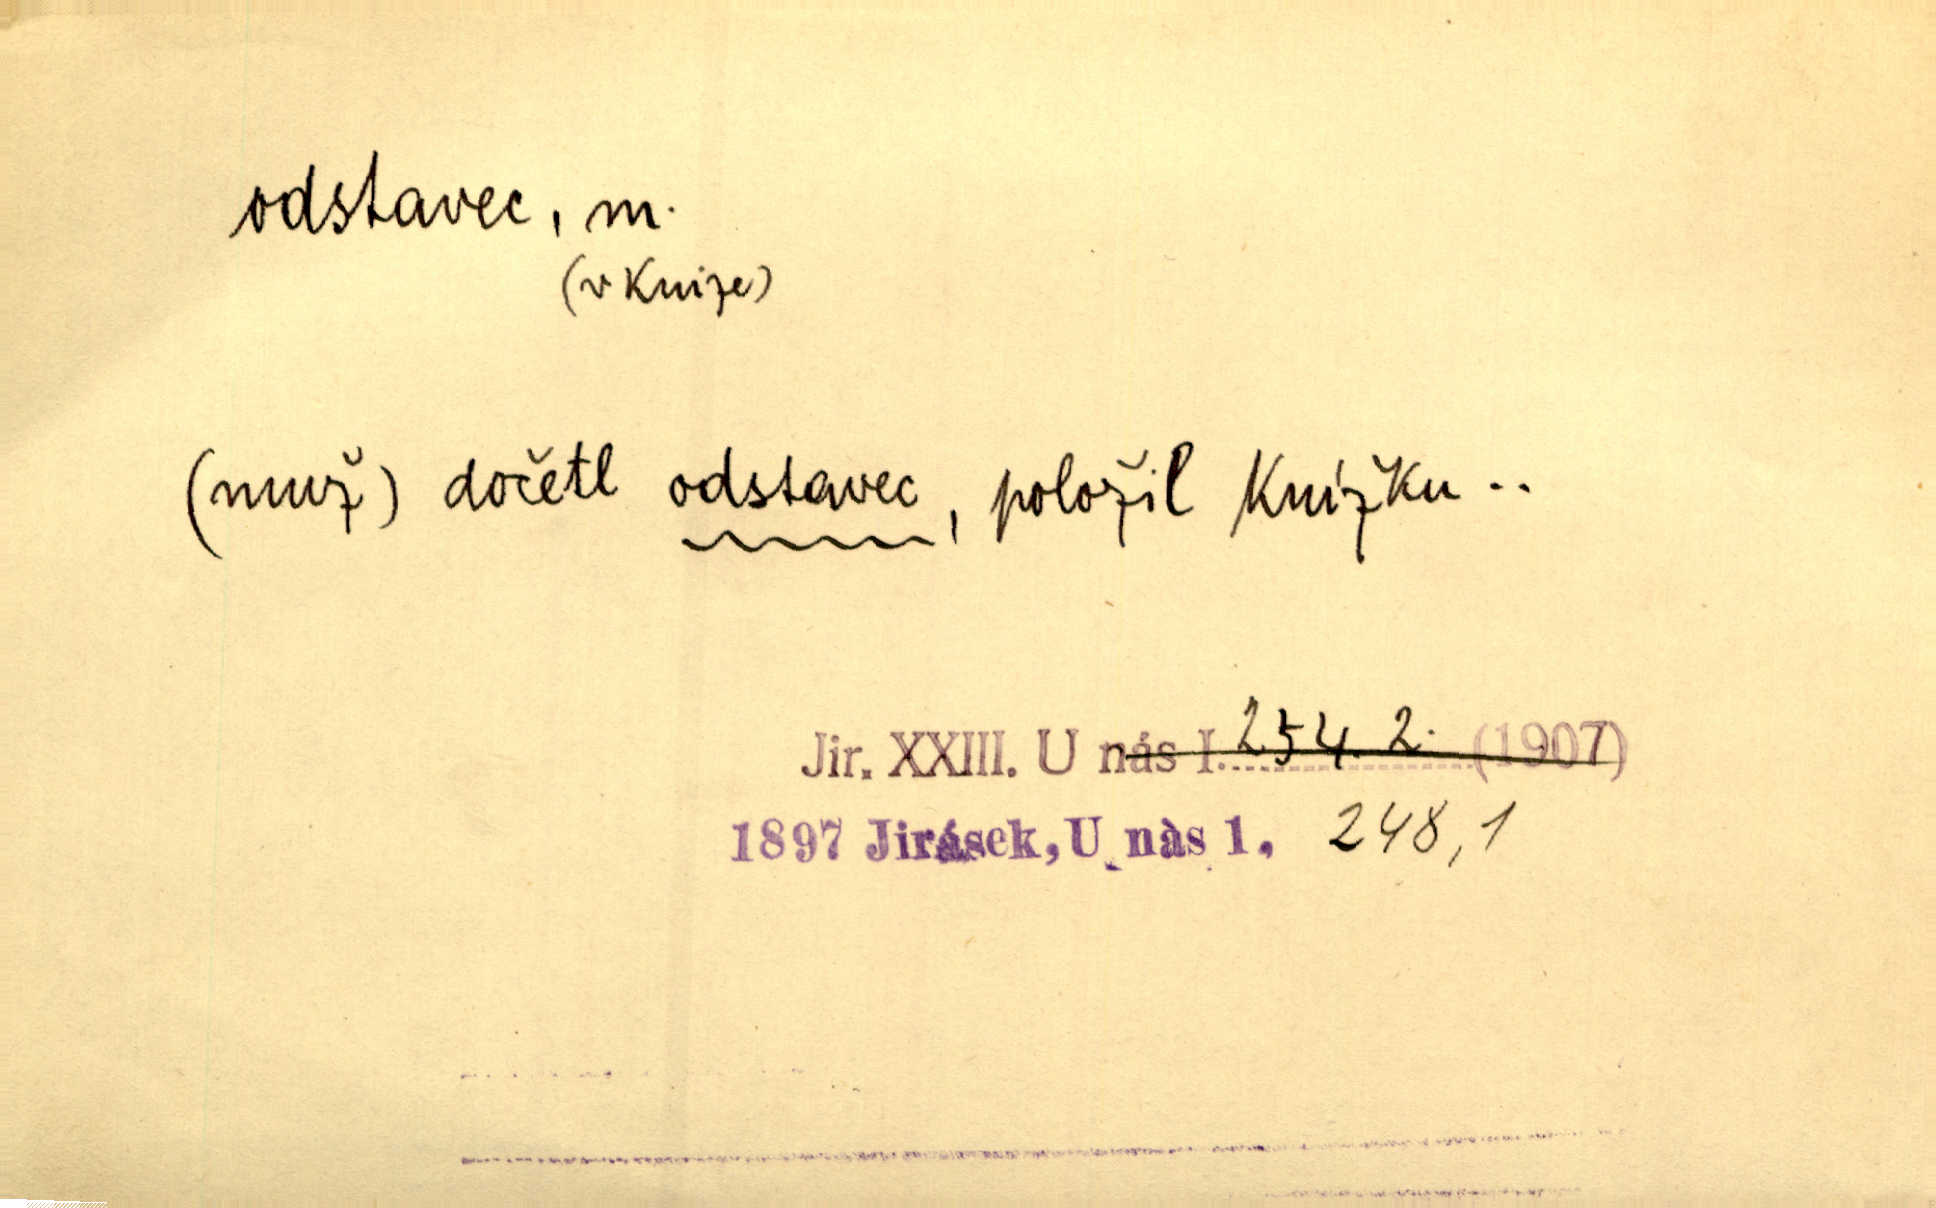 odstavec, m.
(v knize)
(muž) dočetl odstavec, položil knížku ..
Jir. XXIII. U nás I. 254. 2. (1907)
1897 Jirásek, U nàs 1, 248,1